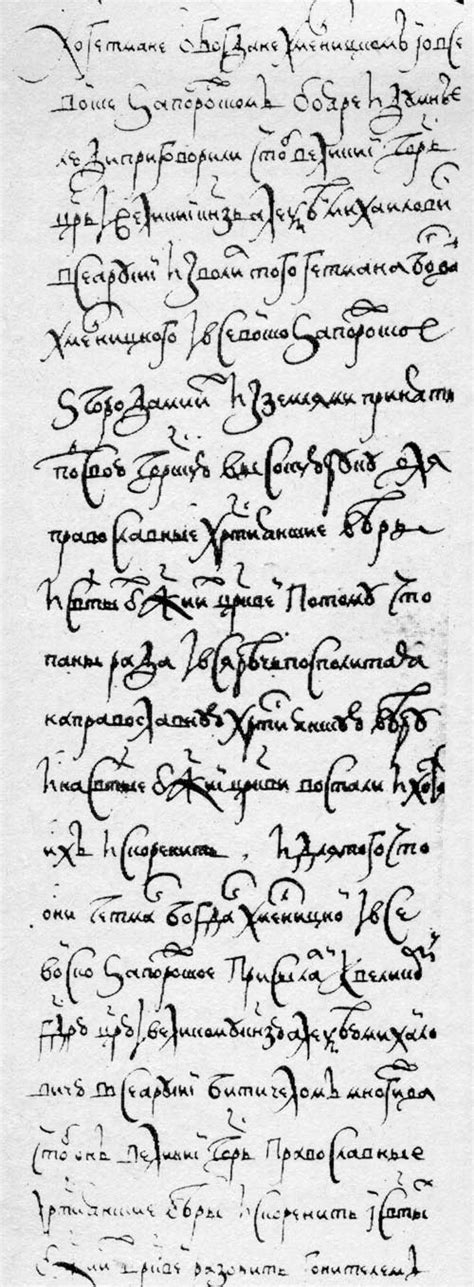 А о гетмане о Богдане Хмелницком и о все
воиске Запорожском бояре и думные
люди приговорили чтоб великии гдрь
црь и великии кнзь Алексеи Михаилови
всеа Русии изволил того гетмана Богдана
Хмелницкого и все воиско Запорожское
з городами их и з землями принять
под свою гдрскую высокую руку для
православные християнские веры
и святых божиих церквеи потому что
паны рада и вся Речь Посполитая
на православную християнскую веру
и на святые божии церкви востали и хотят
их искоренить и для того что
они гетман Богдан Хмелницкои и все
воиско Запорожское присылали к великому
гдрю црю и великому кнзю Алексею Михаило
вичю всеа Русии бити челом многижда
чтоб он великии гдрь православные
християнские веры искоренить и святых
божиих церквеи разорить гонителем